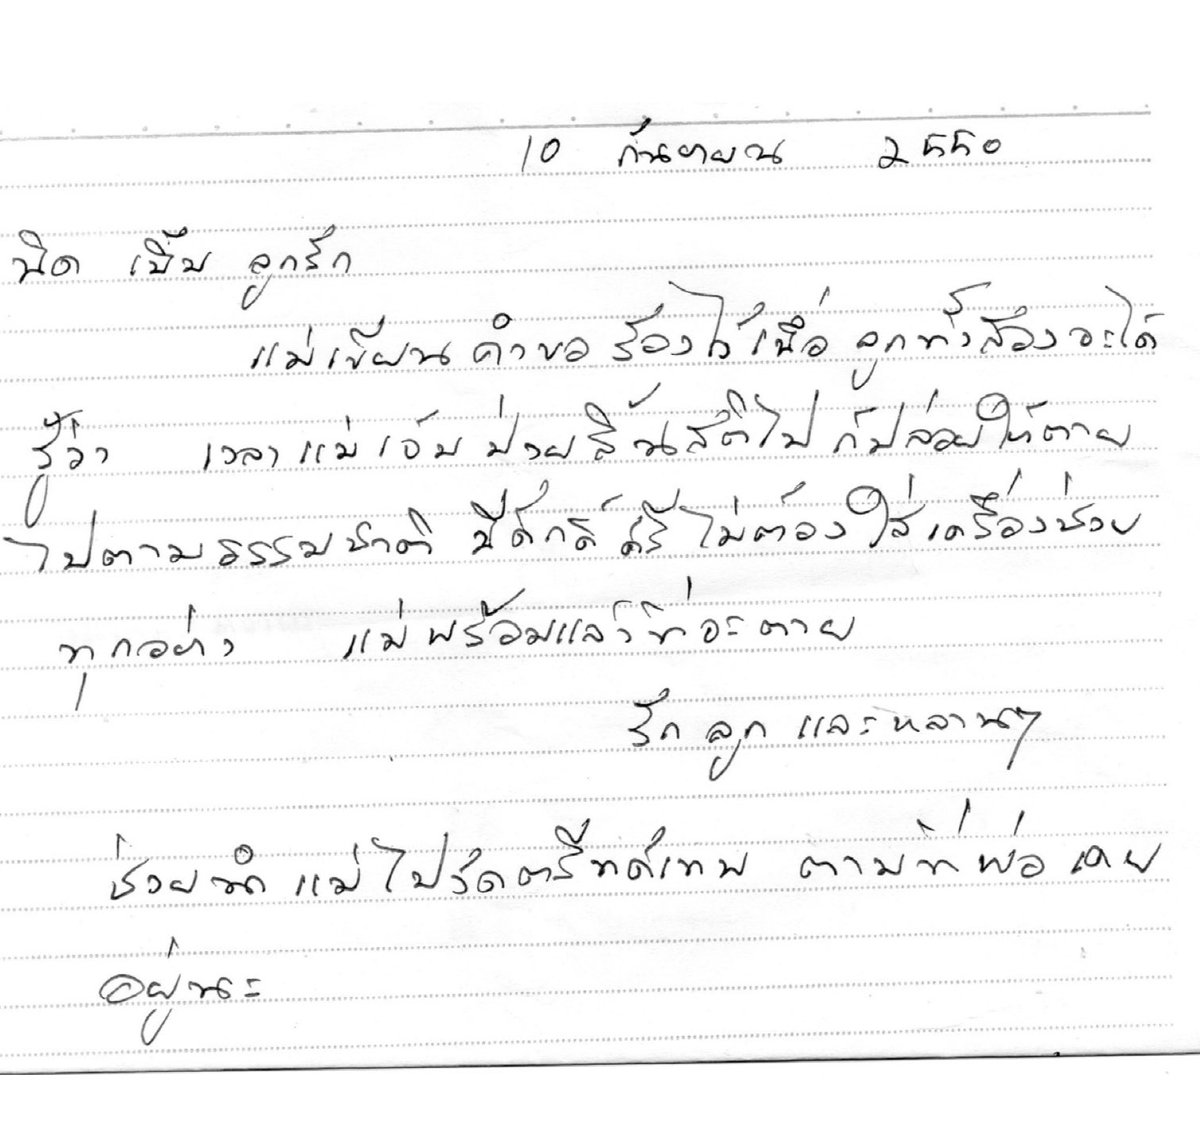 10 กันยายน ๒๕๕๐
นิด เปิ้บ ลูกรัก
แม่เขียนคำขอร้องไว้เพื่อ ลูกทั้งสองจะได้
รู้ว่า เวลาแม่เจ็บป่วยสิ้นสติไป ก็ปล่อยให้ตาย
ไปตามธรรมชาติ มีศักดิ์ศรี ไม่ต้องใส่เครื่องช่วย
ทุกอย่าง แม่พร้อมแล้วที่จะตาย
รัก ลูก และหลานๆ
ช่วยนำแม่ไปวัดตรีทศเทพ ตามที่พ่อเคย
อยู่นะ